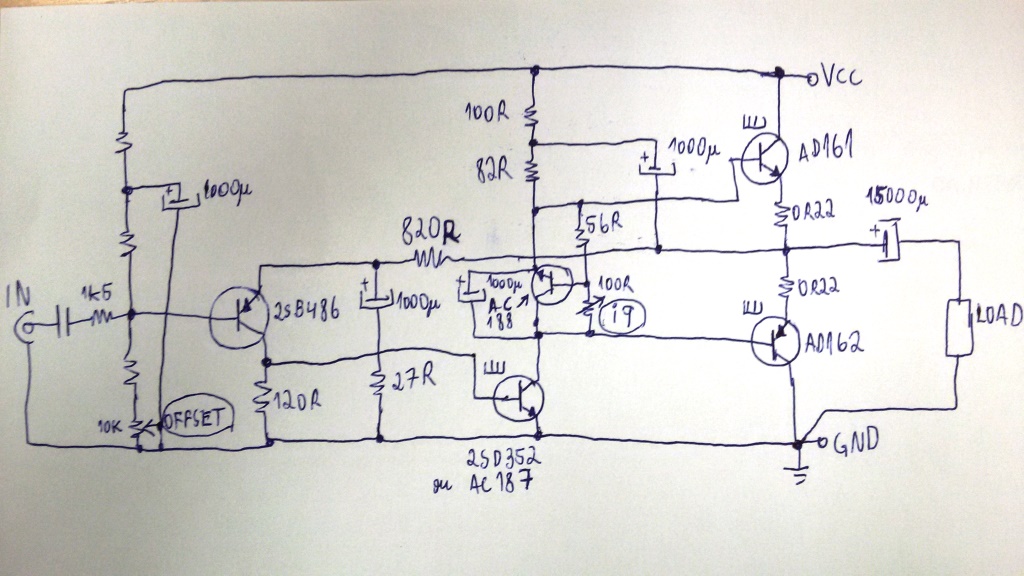 VCC
100R
1000µ
AD161
82R
15000µ
1000µ
56R
0R22
820R
IN
1k5
2SB486
1000µ
1000µ
AC
188
100R
iq
0R22
LOAD
AD162
27R
120R
10K
OFFSET
GND
2SD352
ou AC187